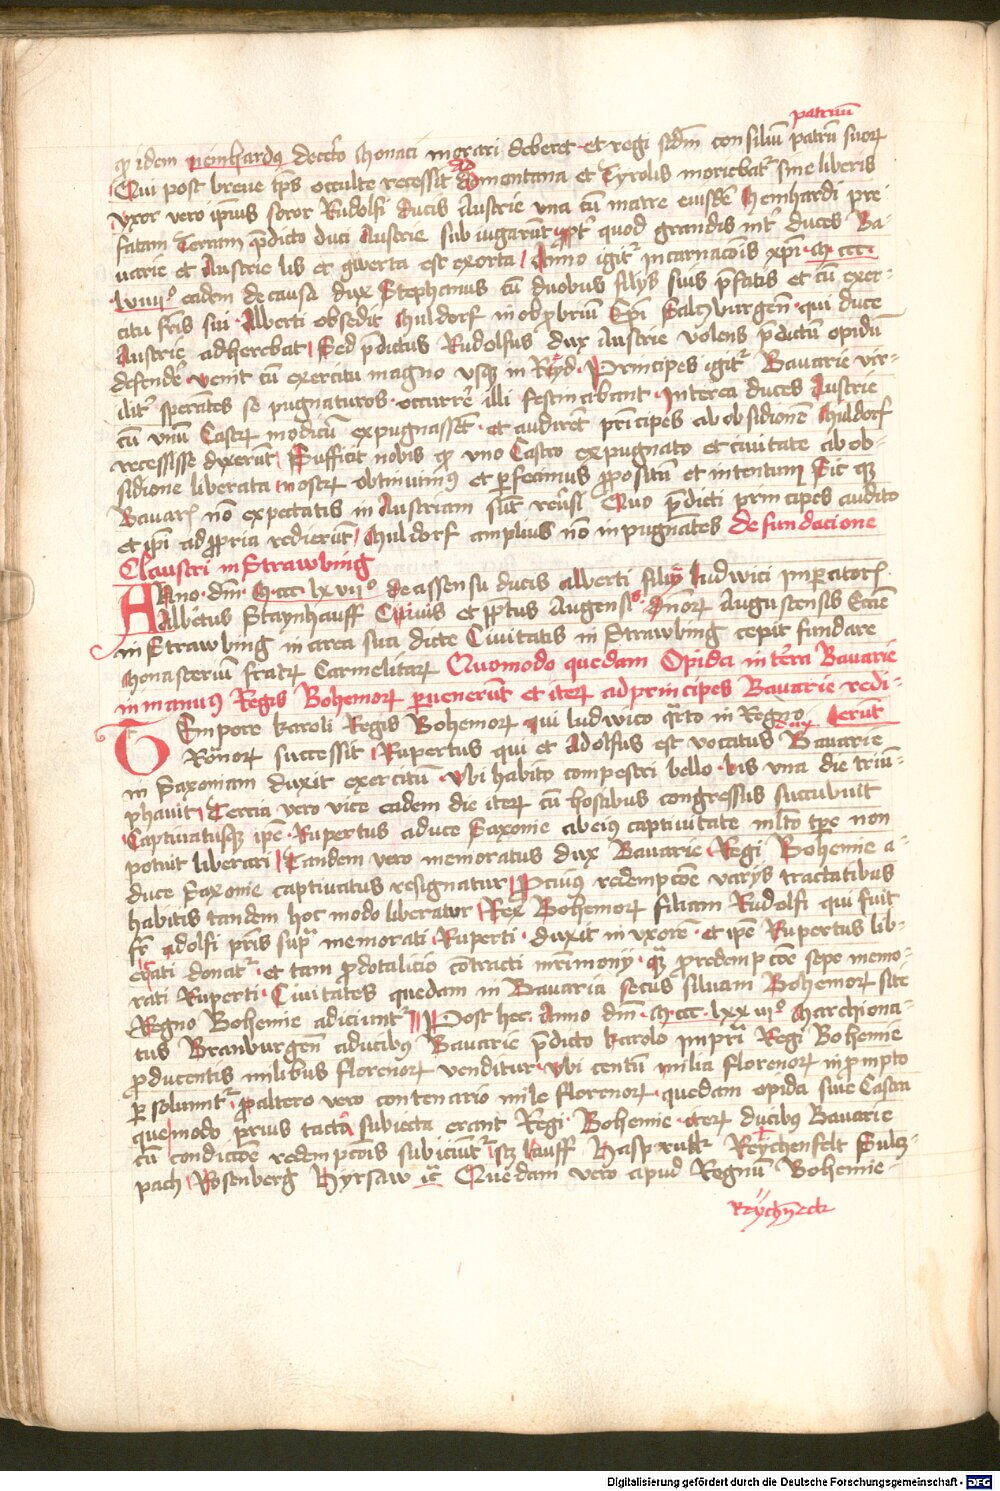 patruū
ꝙ idem meinhardꝰ decet͛o Monaci morari deberet et regi scdm consiliū patrū suoꝝ
Qui post breue tp̄s occulte recessit ad montana et Tyrolis moriebatᷣ sine liberis
vxor vero ipīus soror Rudolfi ducis Austrie vna cū matre eiusdē Meinhardi pre
fatam Terram p̄dicto duci Austrie sub iugarūt ꝓpt͛ quod grandis int͛ duces Ba-
uarie et Austrie lis et gwerra est exorta Anno igit͛ incarnacōis xpī M ccc
lxiiii⁰ eadem de causa dux Stephanus cū duobus filijs suis p̄fatis et cū exer-
citu fr̄is sui Alberti obsedit Muldorf in obꝓbriū Ep̄i Salczburgen̄ qui duce
Austrie adherebat Sed p̄dictus Rudolfus dux Austrie volens p̄dictū opidū
defende͛ venit cū exercitu magno vsqꝫ in Ryd Principes igit͛ Bauarie vir-
ilit͛ sperātes se pugnaturos occurre͛ illi festinabant Interea duces Austrie
cū vnū Castꝝ modicū expugnassēt et audirēt principes ab obsidionē Muldorf
recessisse dyxerūt Sufficit nobis ꝙ vno Castro expugnato et ciuitate ab ob-
sidione liberata nostꝝ obtinuimꝰ et ꝑfecimus ꝓpositū et intentum Sic qꝫ
Bauarꝭ nō expectatis in Austriam sūt reuersi Quo p̄dicti principes audito
et ip̄i ad ꝓpria redierūt Muldorf amplius nō inpugnātes de fundacione
Claustri in Strawbing
Anno dn̄i M ccc lx vii⁰ de assensu ducis alberti filij ludwici jmꝑatorꝭ
Albertus Staynhauff Ciuis et p̄ptus Augensis dn̄oꝝ Augustensis Eccīe
in Strawbing in area sua dicte Ciuitatis in Strawbing cepit fundare
Monasteriū fratꝝ Carmelitaꝝ Quomodo quedam Opida in terra Bauarie
in manus Regis Bohemoꝝ ꝑuenerūt et iteꝝ ad principes Bauarie redi-
Tempore karoli Regis Bohemoꝝ qui ludwico qrto in Regno ierūt
Romoꝝ successit Rupertus qui et Adolfus est vocitus dux Bauarie
in Saxoniam duxit exercitū vbi habito campestri bello bis vna die triū-
phauit Tercia vero vice eadem die iteꝝ cū hostibus congressus succubuit
Captiuatusqꝫ ipē Rupertus a duce Saxonie ab eius captiuitate mlto tp̄e non
potuit liberari Tandem vero memoratus dux Bauarie Regi Bohemie a
duce Saxonie captiuatus resignatur Pro cuiꝰ redempcōe varijs tractatibus
habitis tandem hoc modo liberatur Rex Bohemoꝝ filiam Rudolfi qui fuit
fr̄ Adolfi pr̄is supra memorati Ruperti duxit in vxorē et ipē Rupertus lib-
erati donat͛ et tam ꝓ dotalicio cōtracti mr̄imonij qꝫ ꝓ redempcōe sepe memo-
rati Ruperti Ciuitates quedam in Bauaria secus siluam Bohemoꝝ site
Regno Bohemie adiciūtur Post hec Anno dn̄i M ccc lxx iii⁰ Marchiona-
tus Branburgen̄ a ducibꝰ Bauarie p̄dicto karolo jmpri Regi Bohemie
ꝓ ducentis milibus florenoꝝ venditur vbi centū milia florenoꝝ in prompto
ꝑ soluunt͛ ꝓ altero vero contenario mile florenoꝝ quedam opida siue Castra
que modo prius tacto subiecta erant Regi Bohemie iteꝝ ducibꝰ Bauarie
cū condicōe redempcōis subiciūt͛ scz lauff Haspruk Reychenfelt Sulcz-
pach Rosenberg Hyrsaw ꝛc Quedam vero apud Regnū Bohemie
Reycheneck
Digitalisierung gefördert durch die Deutsche Forschungsgemeinschaft - DFG